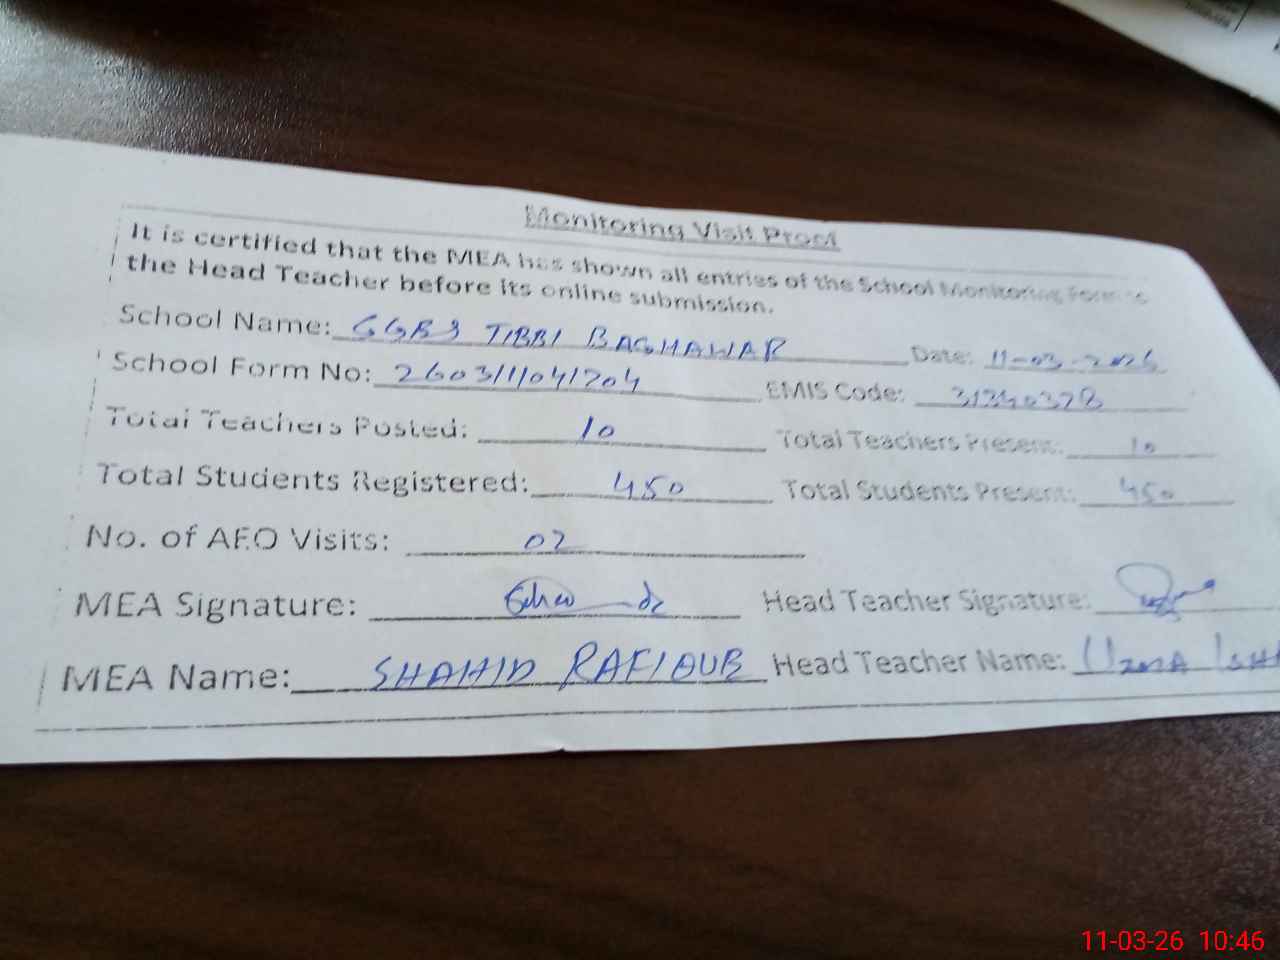 Monitoring Visit Proof
It is certified that the MEA has shown all entries of the School Monitoring Form to
the Head Teacher before its online submission.
School Name: GGES TIBBI BAGHAWAR Date: 11-03-2026
School Form No: 2603111041204 EMIS Code: 31340378
Total Teachers Posted: 10 Total Teachers Present: 10
Total Students Registered: 450 Total Students Present: 450
No. of AEO Visits: 02
MEA Signature: Head Teacher Signature:
MEA Name: SHAHID Head Teacher Name: UZMA
11-03-26 10:46